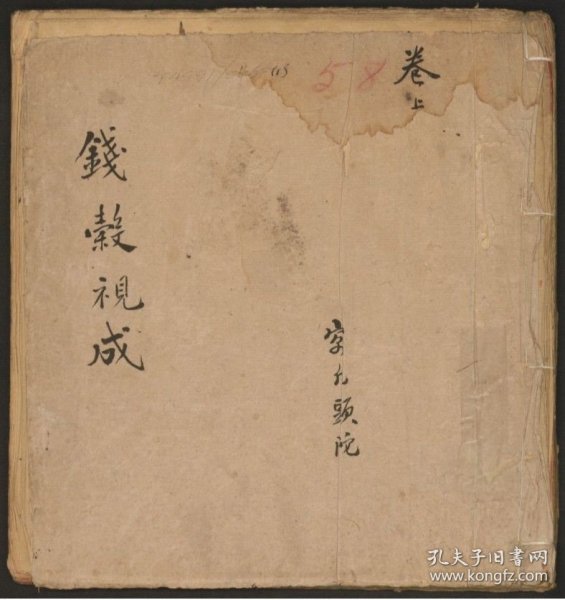 卷上
58
錢穀視成
頭陀
孔夫子旧书网
www.kongfz.com